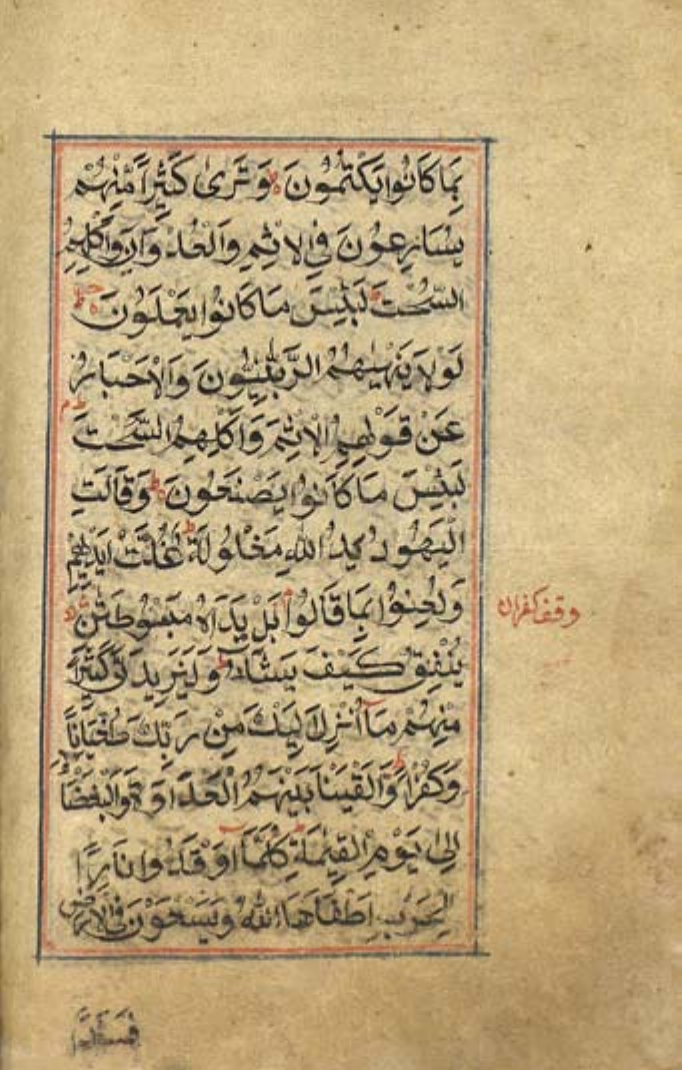 بِمَا كَانُوا يَكْتُمُونَ وَتَرٰى كَثِيْرًا مِّنْهُمْ
يُسَارِعُوْنَ فِي الْاِثْمِ وَالْعُدْوَانِ وَاَكْلِهِمُ
السُّحْتَ لَبِئْسَ مَا كَانُوا يَعْمَلُوْنَ
لَوْلَا يَنْهٰيهُمُ الرَّبّٰنِيُّوْنَ وَالْاَحْبَارُ
عَنْ قَوْلِهِمُ الْاِثْمَ وَاَكْلِهِمُ السُّحْتَ
لَبِئْسَ مَا كَانُوا يَصْنَعُوْنَ وَقَالَتِ
الْيَهُوْدُ يَدُ اللّٰهِ مَغْلُوْلَةٌ غُلَّتْ اَيْدِيْهِمْ
وَلُعِنُوْا بِمَا قَالُوْا بَلْ يَدَاهُ مَبْسُوْطَتٰنِ
يُنْفِقُ كَيْفَ يَشَآءُ وَلَيَزِيْدَنَّ كَثِيْرًا
مِنْهُمْ مَآ اُنْزِلَ اِلَيْكَ مِنْ رَبِّكَ طُغْيَانًا
وَكُفْرًا وَاَلْقَيْنَا بَيْنَهُمُ الْعَدَاوَةَ وَالْبَغْضَآءَ
اِلٰى يَوْمِ الْقِيٰمَةِ كُلَّمَآ اَوْقَدُوا نَارًا
لِّلْحَرْبِ اَطْفَاَهَا اللّٰهُ وَيَسْعَوْنَ فِي الْاَرْضِ
وقف کفران
فَسَادًا